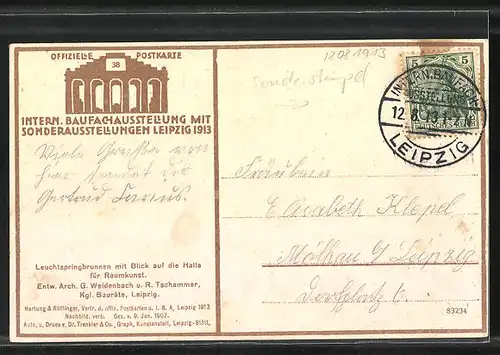 OFFIZIELLE POSTKARTE
38
INTERN. BAUFACHAUSSTELLUNG MIT
SONDERAUSSTELLUNGEN LEIPZIG 1913
Viele Grüße von
hier sendet dir
Gertrud
Leuchtspringbrunnen mit Blick auf die Halle
für Raumkunst.
Entw. Arch. G. Weidenbach u. R. Tschammer,
Kgl. Bauräte, Leipzig.
Hartung & Röttinger, Vertr. d. offiz. Postkarten d. I. B. A. Leipzig 1913
Nachbild. verb. Ges. v. 9. Jan. 1907.
Aufn. u. Druck v. Dr. Trenkler & Co., Graph. Kunstanstalt, Leipzig-Stött.
12081913
Sonderstempel
5 5
INTERN. BAUFACH
12.8.13
LEIPZIG
Fräulein
Elisabeth Klepel
Mölkau b/ Leipzig
Dorfplatz 6.
83234